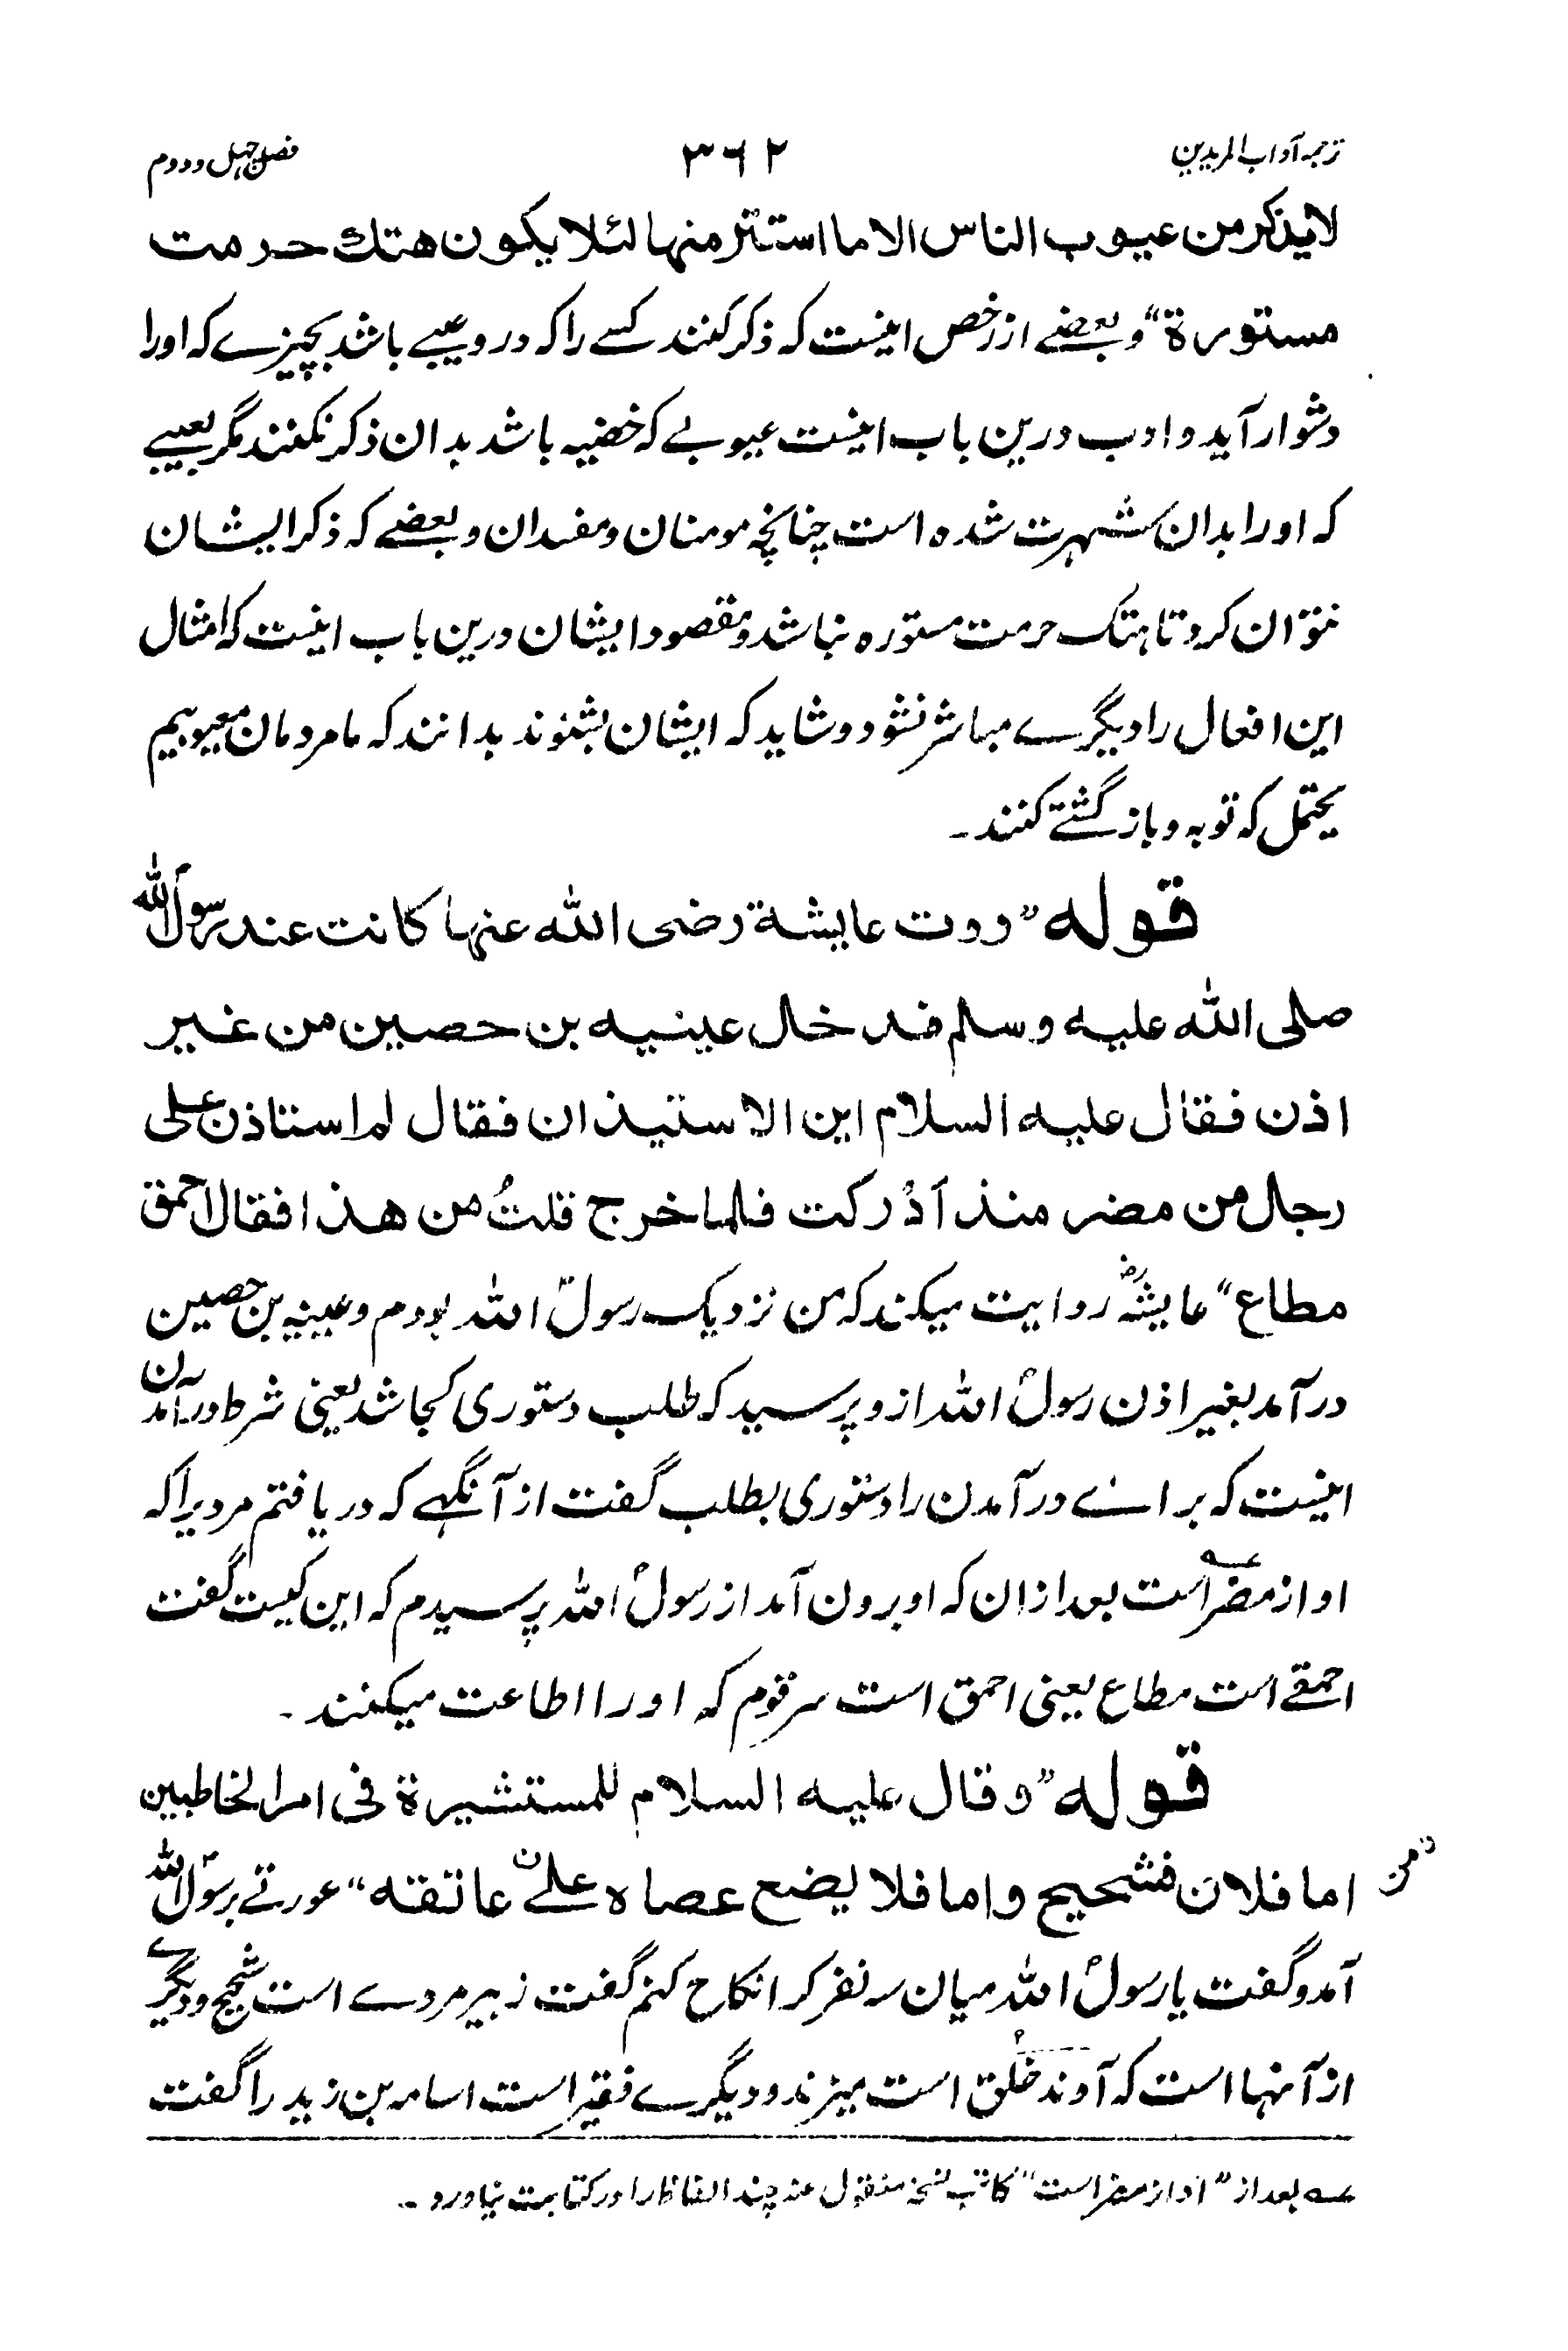 ترجمہ آداب المریدین ۳۶۲ فصل چہل و دوم
لایذکر من عیوب الناس الا ما استتر منها لئلا یکون هتك حرمت
مستورة" و بعضے از رخص اینست کہ ذکر کنند کسے را کہ در و عیبے باشد بچیزے کہ اورا
دشوار آید و ادب درین باب اینست عیوبے کہ خفیہ باشد بدان ذکر نکنند مگر بعیبے
کہ اورا بدان شہرت شدہ است چنانچہ مومنان و مفسدان و بعضے کہ ذکر ایشان
نتوان کرد تا ہتک حرمت مستورہ نباشد و مقصود ایشان درین باب اینست کہ امثال
این افعال را دیگرے مباشر نشود و شاید کہ ایشان بشنوند بدانند کہ ما مردمان معیوبیم
یحتمل کہ توبہ و بازگشتے کنند۔
قوله "روت عایشة رضی الله عنها کانت عند رسول الله
صلی الله علیه وسلم فدخال عینیه بن حصین من غیر
اذن فقال علیه السلام این الاستیذان فقال لم استاذن علی
رجال من مضر منذ ادرکت فلما خرج قلتُ من هذا فقال احمق
مطاع" عایشہؓ روایت میکند کہ من نزدیک رسولؐ اللہ بودم و عینیہ بن حصین
درآمد بغیر اذن رسولؐ اللہ از و پرسید کہ طلب دستوری کجا شد یعنی شرط درآمدن
اینست کہ برائے درآمدن را دستوری بطلب گفت از آنگہے کہ دریافتم مردیرا کہ
او از مضر است عہ بعد ازان کہ او برون آمد از رسولؐ اللہ پرسیدم کہ این کیست گفت
احمقے است مطاع یعنی احمق است سر قوم کہ اورا اطاعت میکنند۔
قوله "وقال علیه السلام للمستشیرة فی امر الخاطبین
اما فلان فشحیح واما فلا یضع عصاه علےٰ ن عاتقه" عورتے بر رسولؐ اللہ
ن من
آمد و گفت یا رسولؐ اللہ میان سہ نفر کرا نکاح کنم گفت زبیر مردے است شحیح و دیگرے
از آنہا است کہ آوند خلق است میزند و دیگرے فقیر است اسامہ بن زید را گفت
عہ بعد از "او از مضر است" کاتب نسخہ منقول عنہ چند الفاظ را در کتابت نیاورد۔